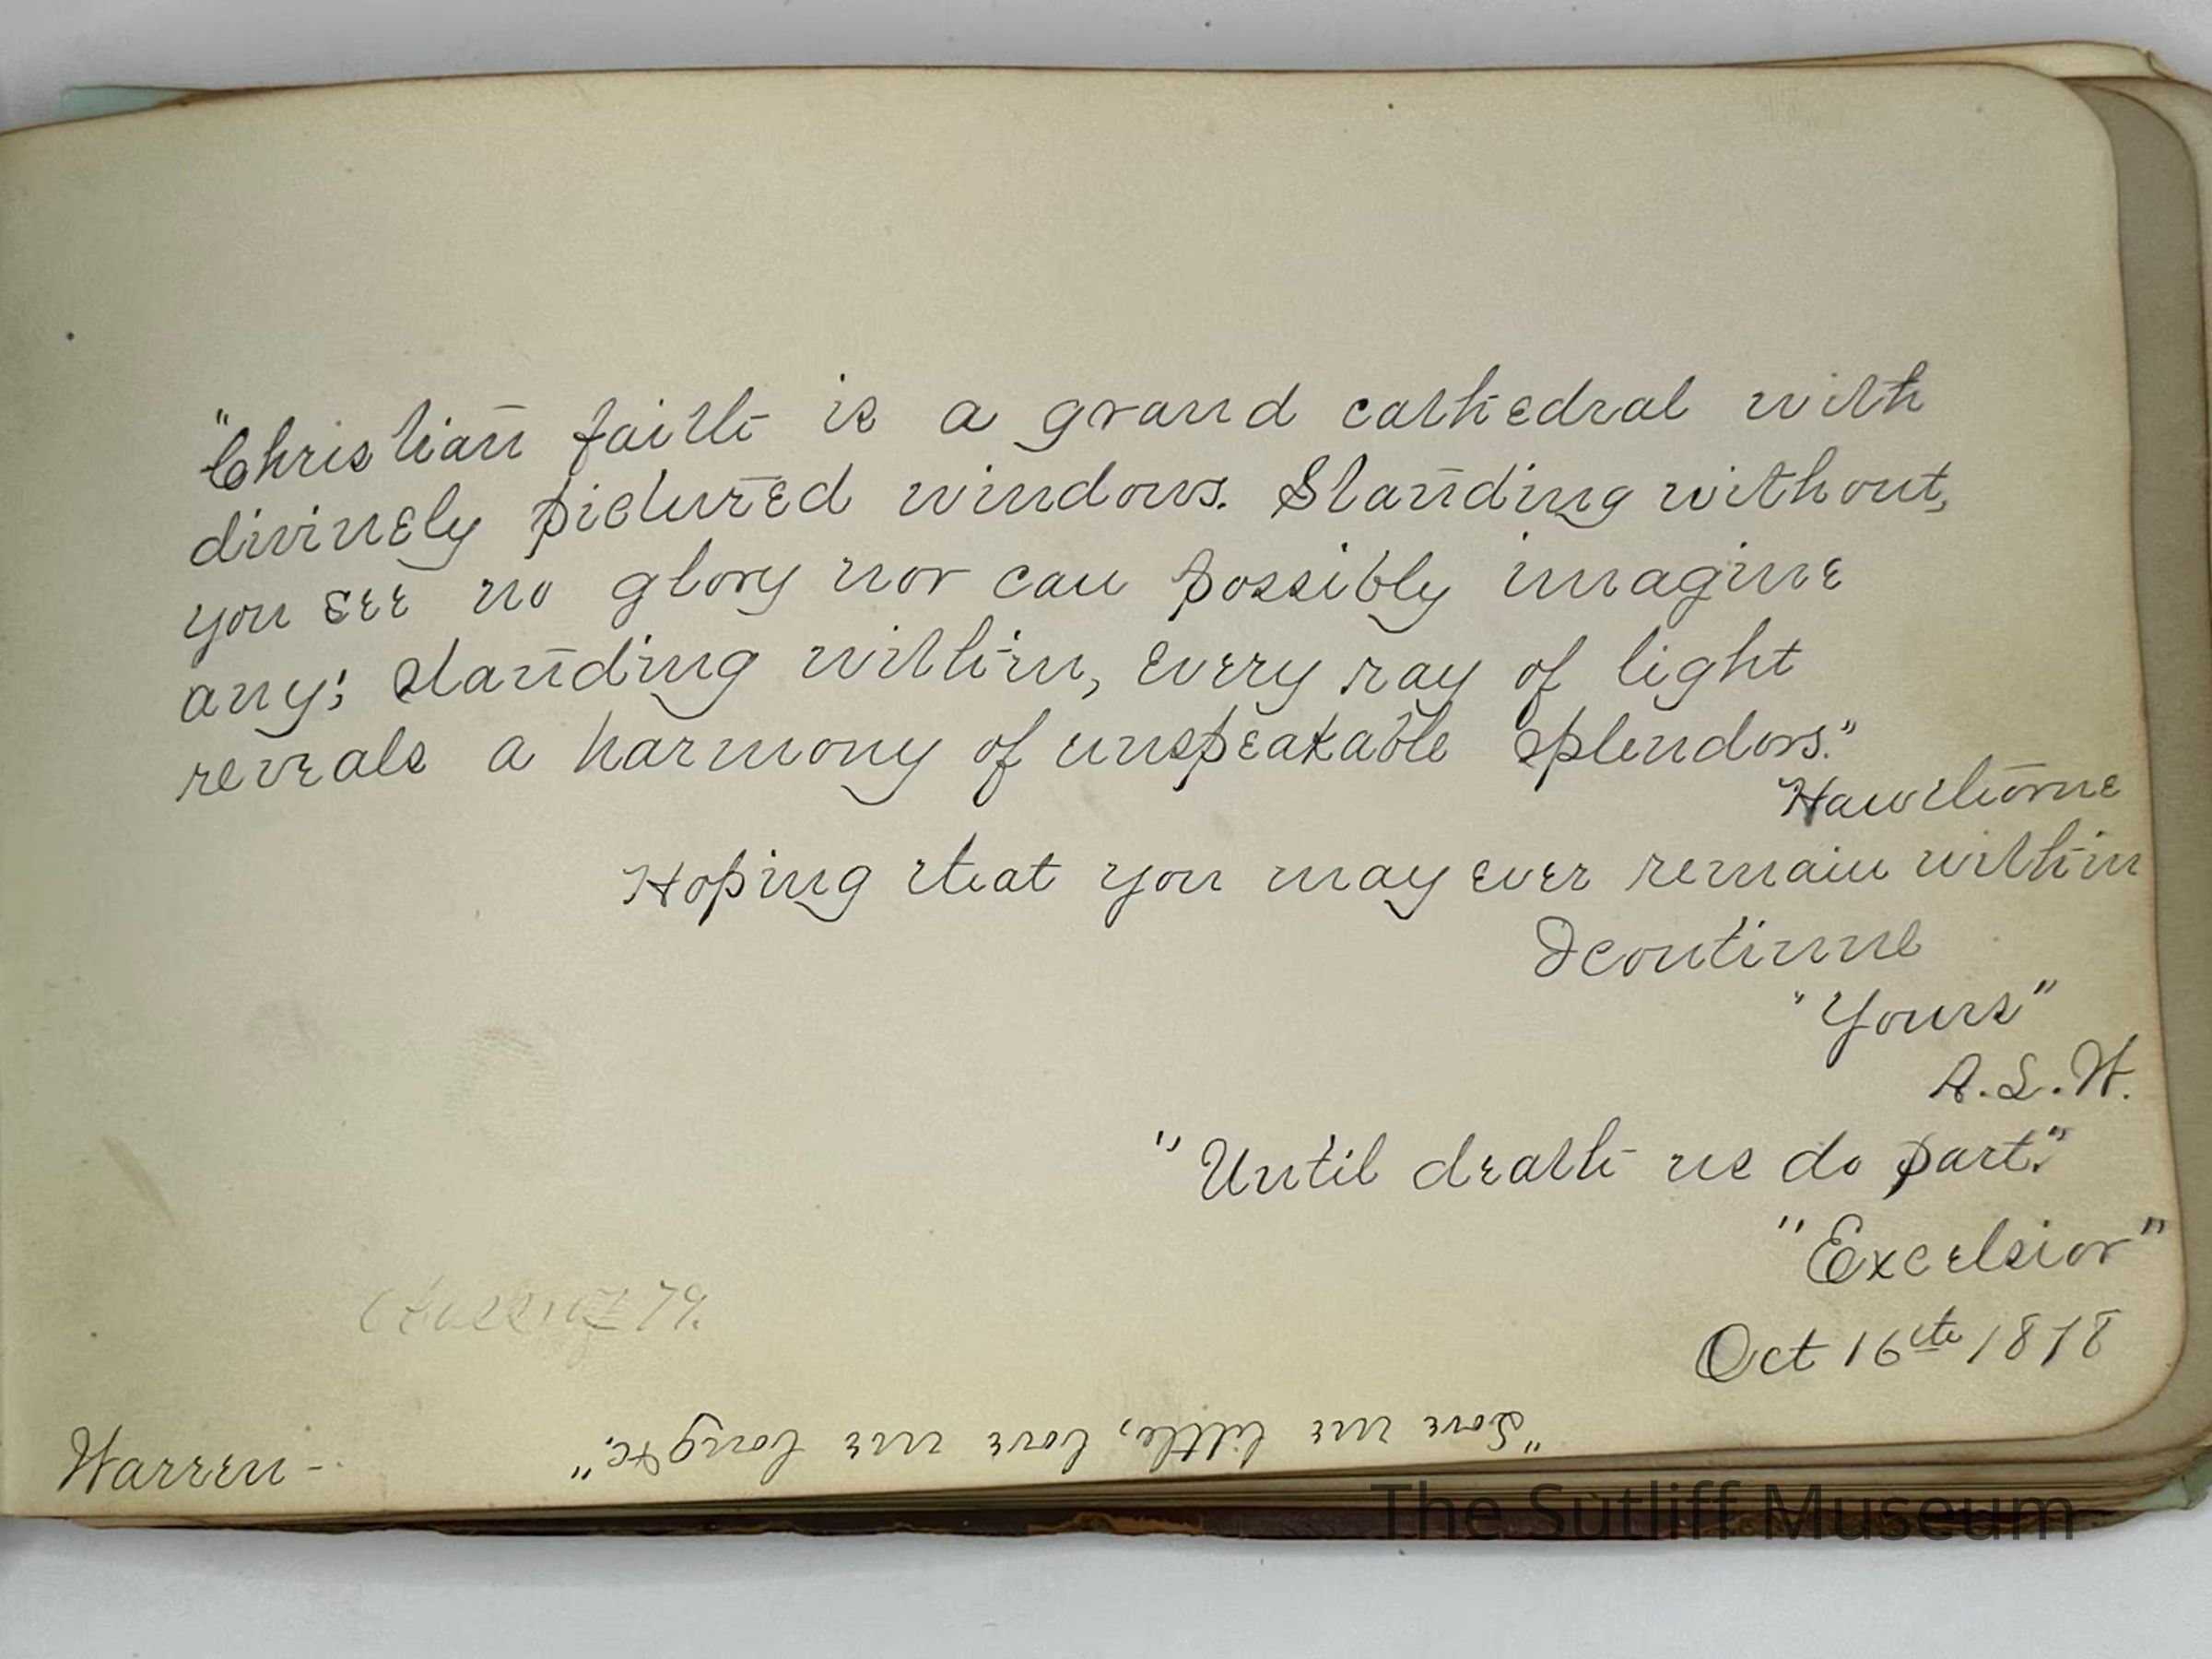 "Christian faith is a grand cathedral with
divinely pictured windows. Standing without,
you see no glory nor can possibly imagine
any; standing within, every ray of light
reveals a harmony of unspeakable splendors."
Hawthorne
Hoping that you may ever remain within
I continue
"Yours"
A.L.W.
"Until death us do part."
"Excelsior"
79.
Oct 16th 1878
Warren-
"Love me little, love me long &c."
The Sutliff Museum